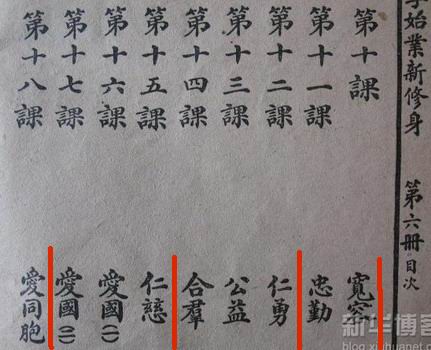 始業新修身 第六冊 目次
第十課 寬容
第十一課 忠勤
第十二課 仁勇
第十三課 公益
第十四課 合羣
第十五課 仁慈
第十六課 愛國(一)
第十七課 愛國(二)
第十八課 愛同胞
新华博客
blog.xinhuanet.com